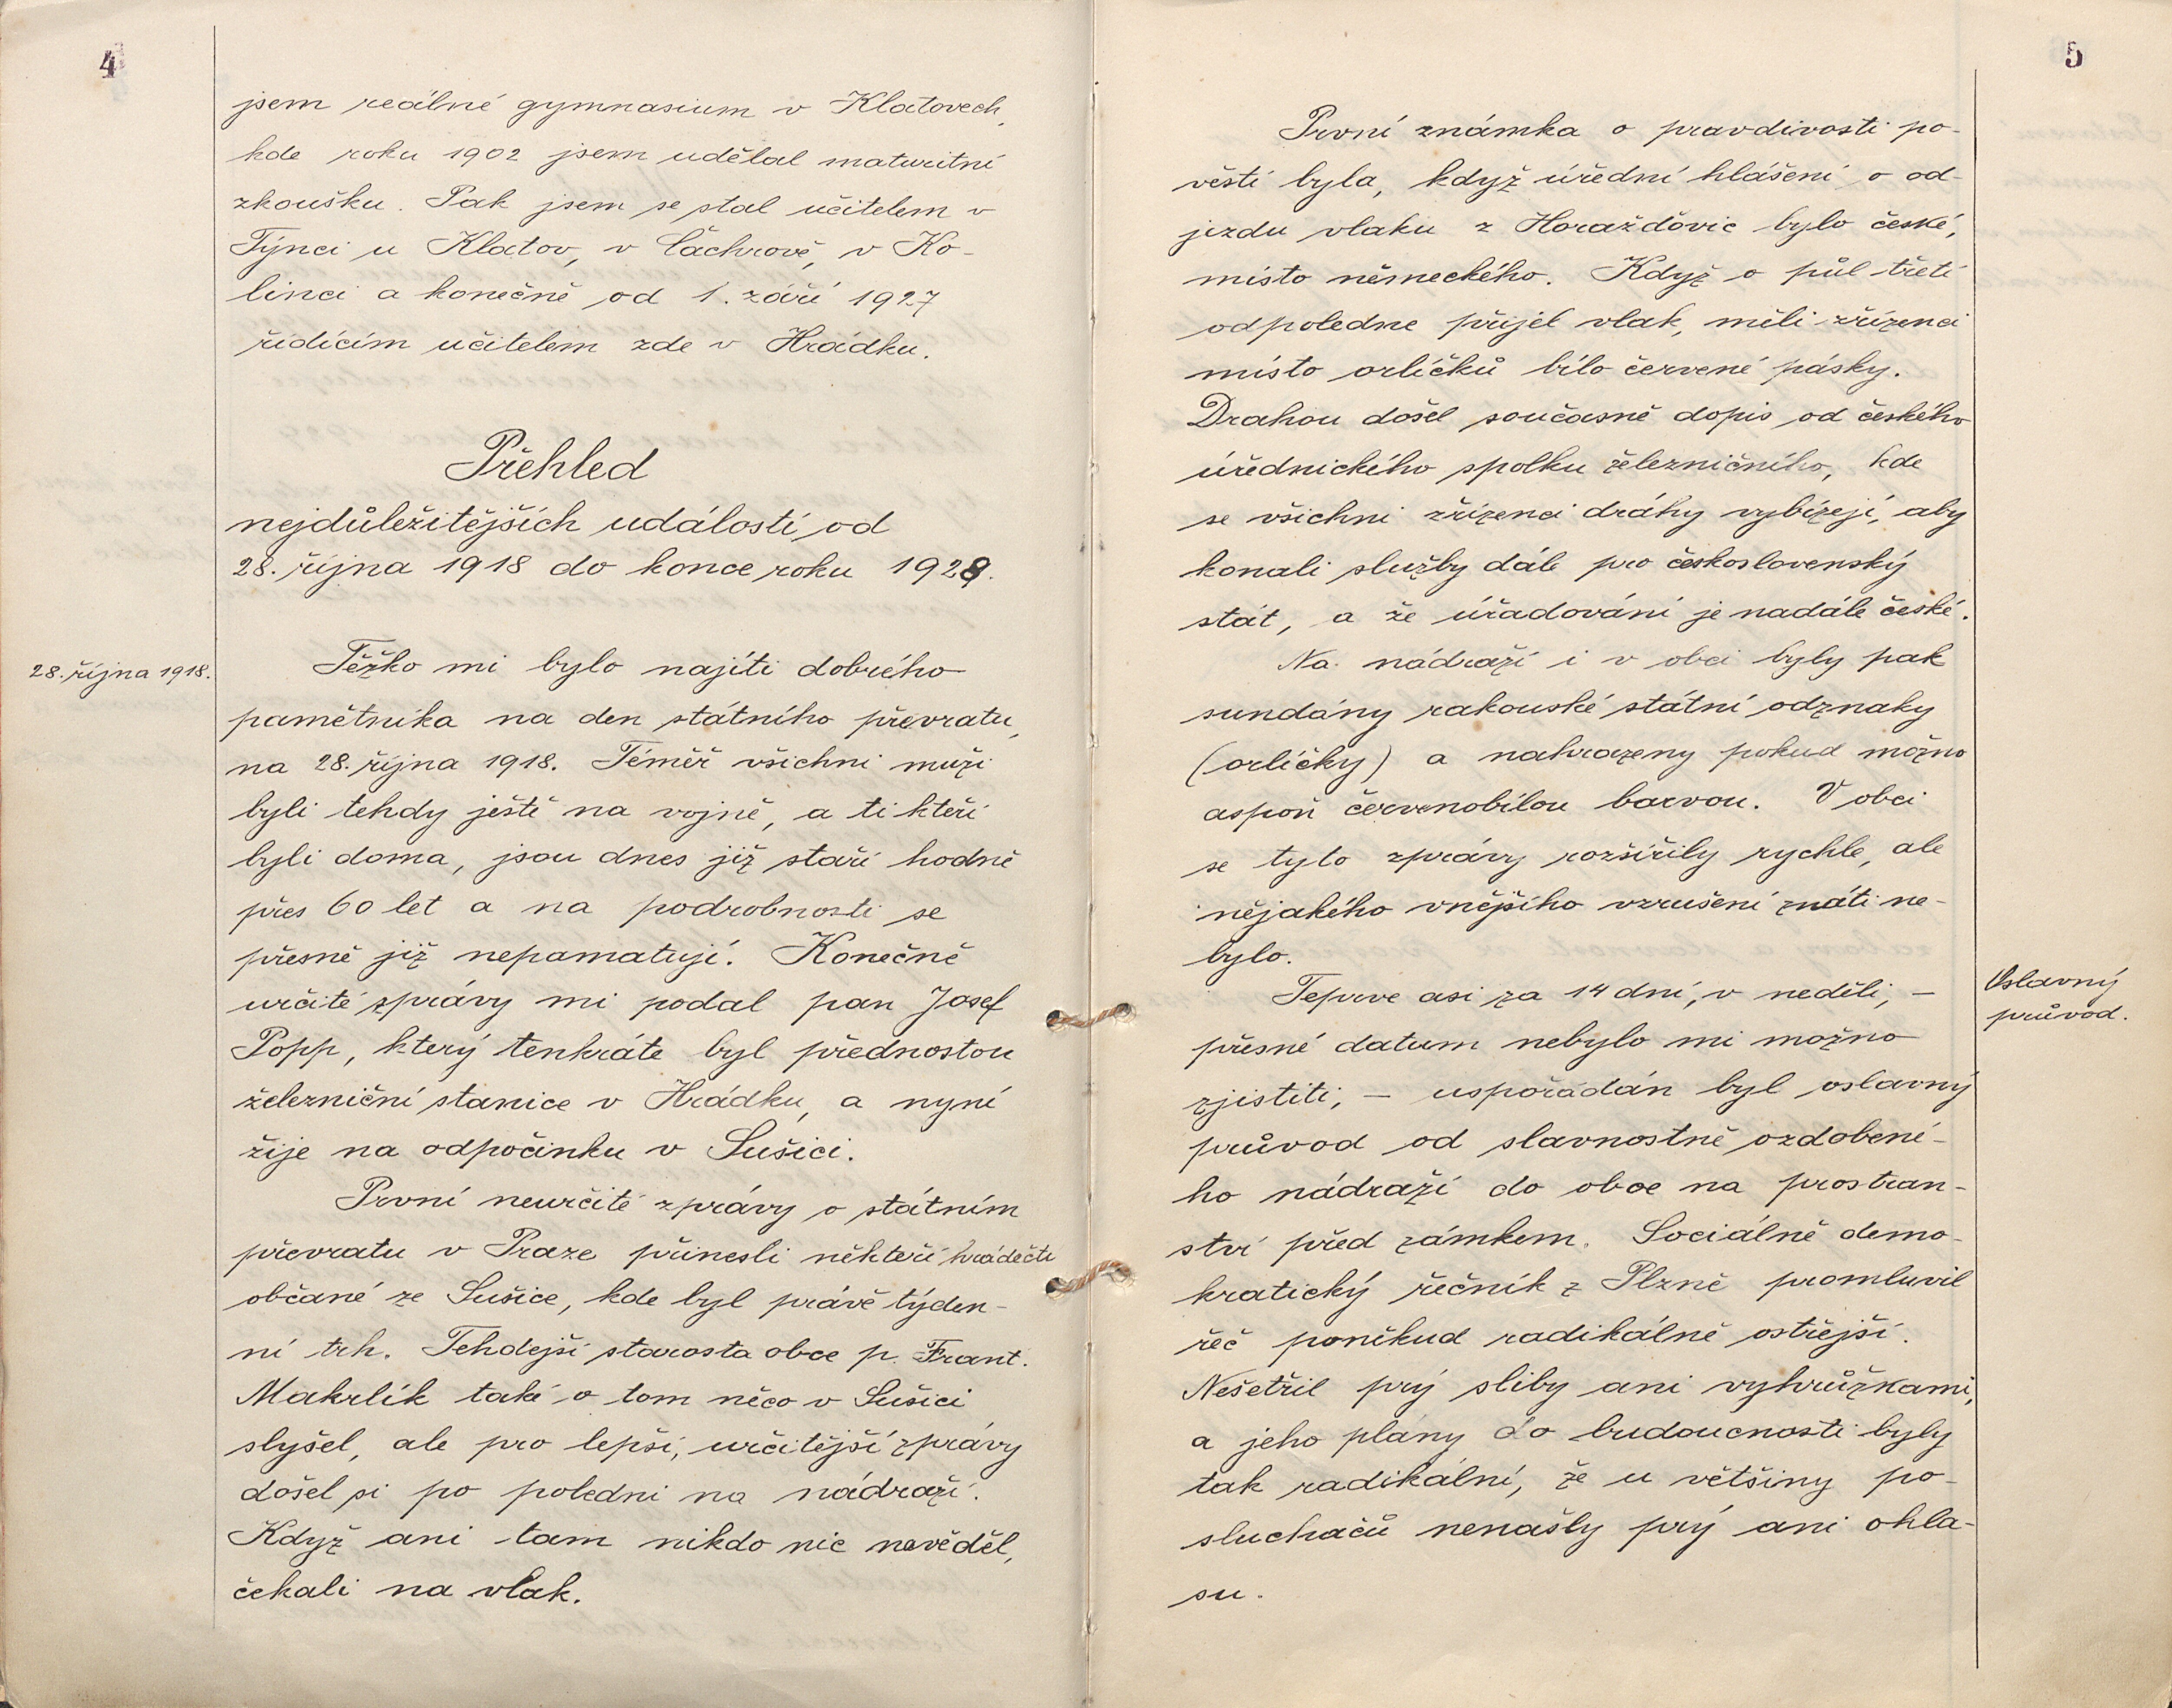 4
jsem reálné gymnasium v Klatovech,
kde roku 1902 jsem udělal maturitní
zkoušku. Pak jsem se stal učitelem v
Týnci u Klatov, v Čáchrově, v Ko-
linci a konečně od 1. září 1927
řídícím učitelem zde v Hrádku.
Přehled
nejdůležitějších událostí od
28. října 1918 do konce roku 1928.
28. října 1918.
Těžko mi bylo najíti dobrého
pamětníka na den státního převratu,
na 28. října 1918. Téměř všichni muži
byli tehdy ještě na vojně, a ti kteří
byli doma, jsou dnes již staří hodně
přes 60 let a na podrobnosti se
přesně již nepamatují. Konečně
určité zprávy mi podal pan Josef
Popp, který tenkráte byl přednostou
železniční stanice v Hrádku, a nyní
žije na odpočinku v Sušici.
První neurčité zprávy o státním
převratu v Praze přinesli někteří hrádečtí
občané ze Sušice, kde byl právě týden-
ní trh. Tehdejší starosta obce p. Frant.
Makrlík také o tom něco v Sušici
slyšel, ale pro lepší, určitější zprávy
došel si po poledni na nádraží.
Když ani tam nikdo nic nevěděl,
čekali na vlak.
5
První známka o pravdivosti po-
věsti byla, když úřední hlášení o od-
jezdu vlaku z Horažďovic bylo české,
místo německého. Když o půl třetí
odpoledne přijel vlak, měli zřízenci
místo orlíčků bílo červené pásky.
Drahou došel současně dopis od českého
úřednického spolku železničního, kde
se všichni zřízenci dráhy vybízejí, aby
konali služby dále pro československý
stát, a že úřadování je nadále české.
Na nádraží i v obci byly pak
sundány rakouské státní odznaky
(orlíčky) a nahrazeny pokud možno
aspoň červenobílou barvou. V obci
se tyto zprávy rozšířily rychle, ale
nějakého vnějšího vzrušení znáti ne-
bylo.
Oslavný
průvod.
Teprve asi za 14 dní, v neděli, –
přesné datum nebylo mi možno
zjistiti, – uspořádán byl oslavný
průvod od slavnostně ozdobené-
ho nádraží do obce na prostran-
ství před zámkem. Sociálně demo-
kratický řečník z Plzně promluvil
řeč poněkud radikálně ostřejší.
Nešetřil prý sliby ani vyhrůžkami,
a jeho plány do budoucnosti byly
tak radikální, že u většiny po-
sluchačů nenašly prý ani ohla-
su.